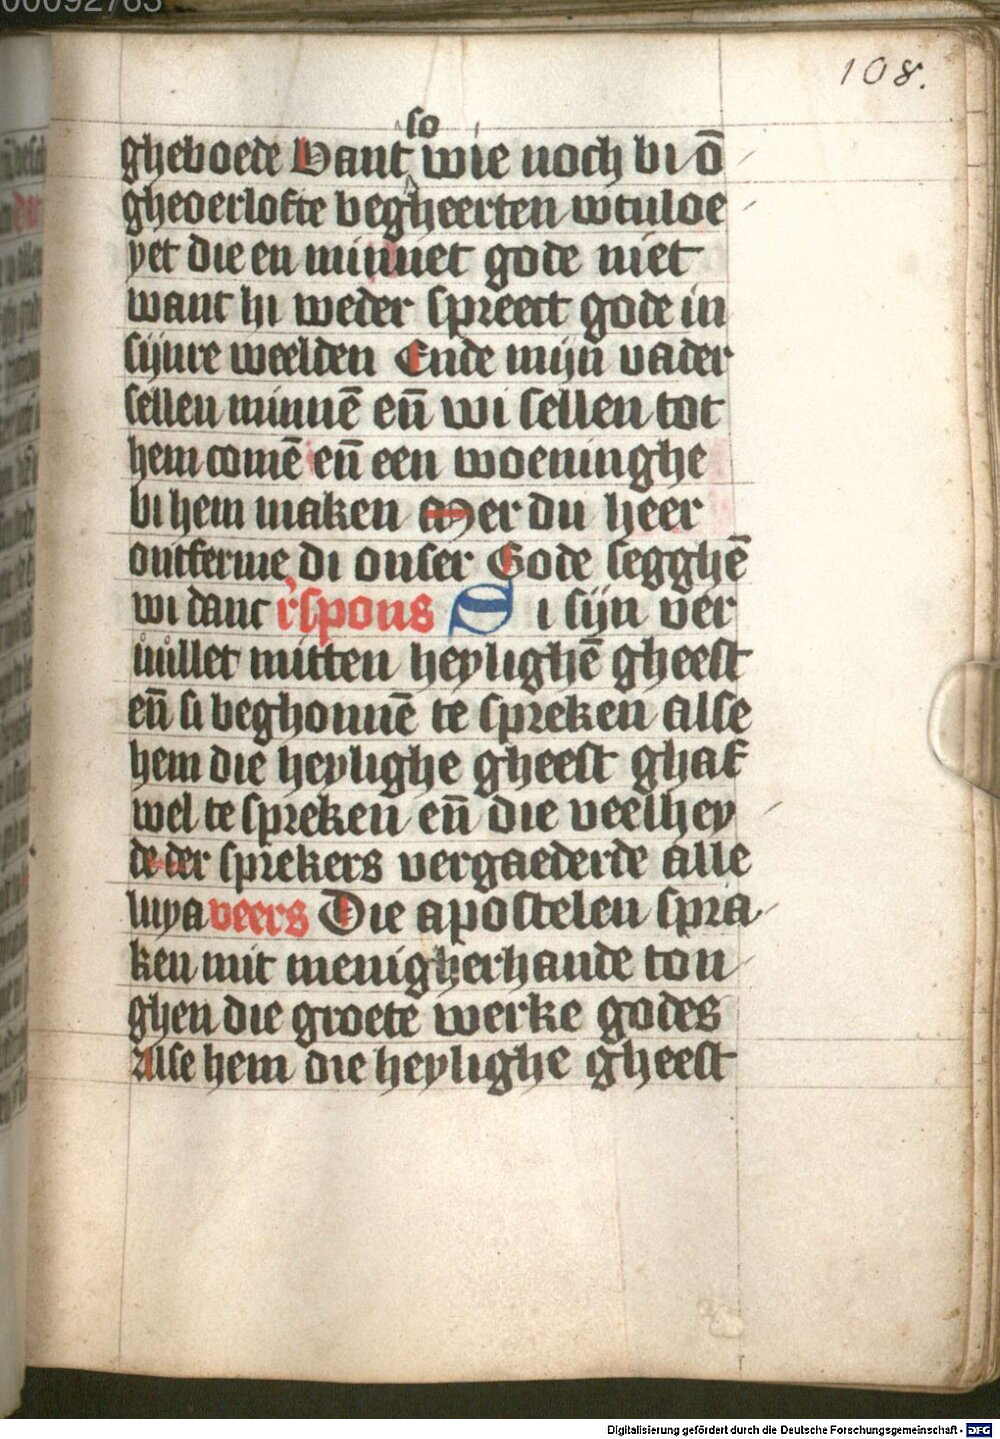 00092783
108.
so
gheboede Want wie noch bi ō
gheoerlofte begheerten wtuloe
yet die en minnet gode niet
want hi weder spreect gode in
sijnre weelden Ende mijn vader
sellen minnē en̄ wi sellen tot
hem comē en̄ een woeninghe
bi hem maken Mer du heer
ontferme di onser Gode segghē
wi danc rʼspons Si sijn ver
uullet mitten heylighē gheest
en̄ si beghonnē te spreken alse
hem die heylighe gheest ghaf
wel te spreken en̄ die veelhey
de der sprekers vergaederde alle
luya veers Die apostelen spra
ken mit menigherhande ton
ghen die groete werke godes
Alse hem die heylighe gheest
Digitalisierung gefördert durch die Deutsche Forschungsgemeinschaft - DFG